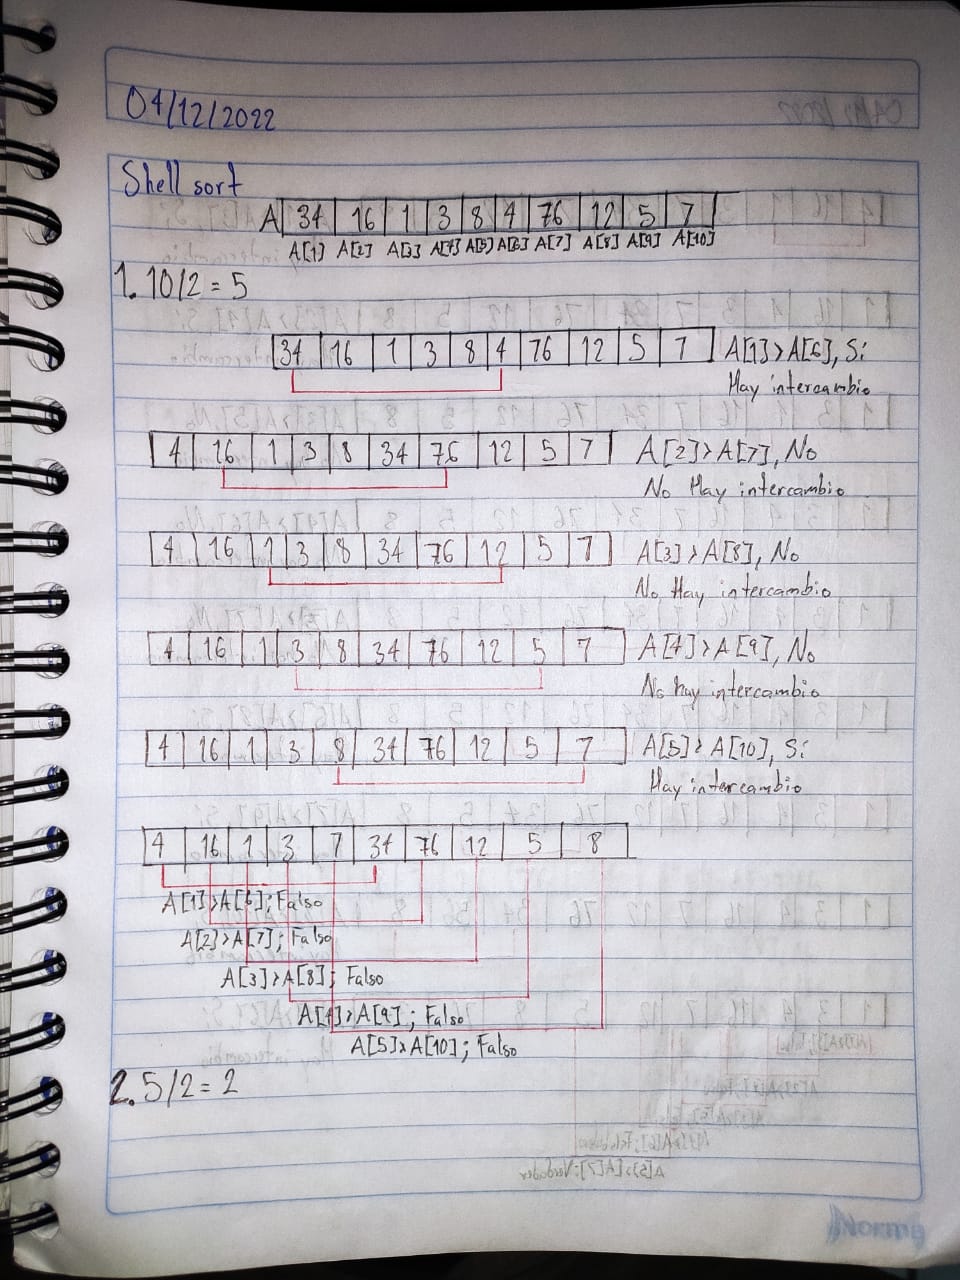 04/12/2022
Shell sort
A 34 16 1 3 8 4 76 12 5 7
A[1] A[2] A[3] A[4] A[5] A[6] A[7] A[8] A[9] A[10]
1. 10/2 = 5
34 16 1 3 8 4 76 12 5 7 A[1]>A[6], Si
Hay intercambio
4 16 1 3 8 34 76 12 5 7 A[2]>A[7], No
No Hay intercambio
4 16 1 3 8 34 76 12 5 7 A[3]>A[8], No
No Hay intercambio
4 16 1 3 8 34 76 12 5 7 A[4]>A[9], No
No hay intercambio
4 16 1 3 8 34 76 12 5 7 A[5]>A[10], Si
Hay intercambio
4 16 1 3 7 34 76 12 5 8
A[1]>A[6]; Falso
A[2]>A[7]; Falso
A[3]>A[8]; Falso
A[4]>A[9]; Falso
A[5]>A[10]; Falso
2. 5/2 = 2
Norma